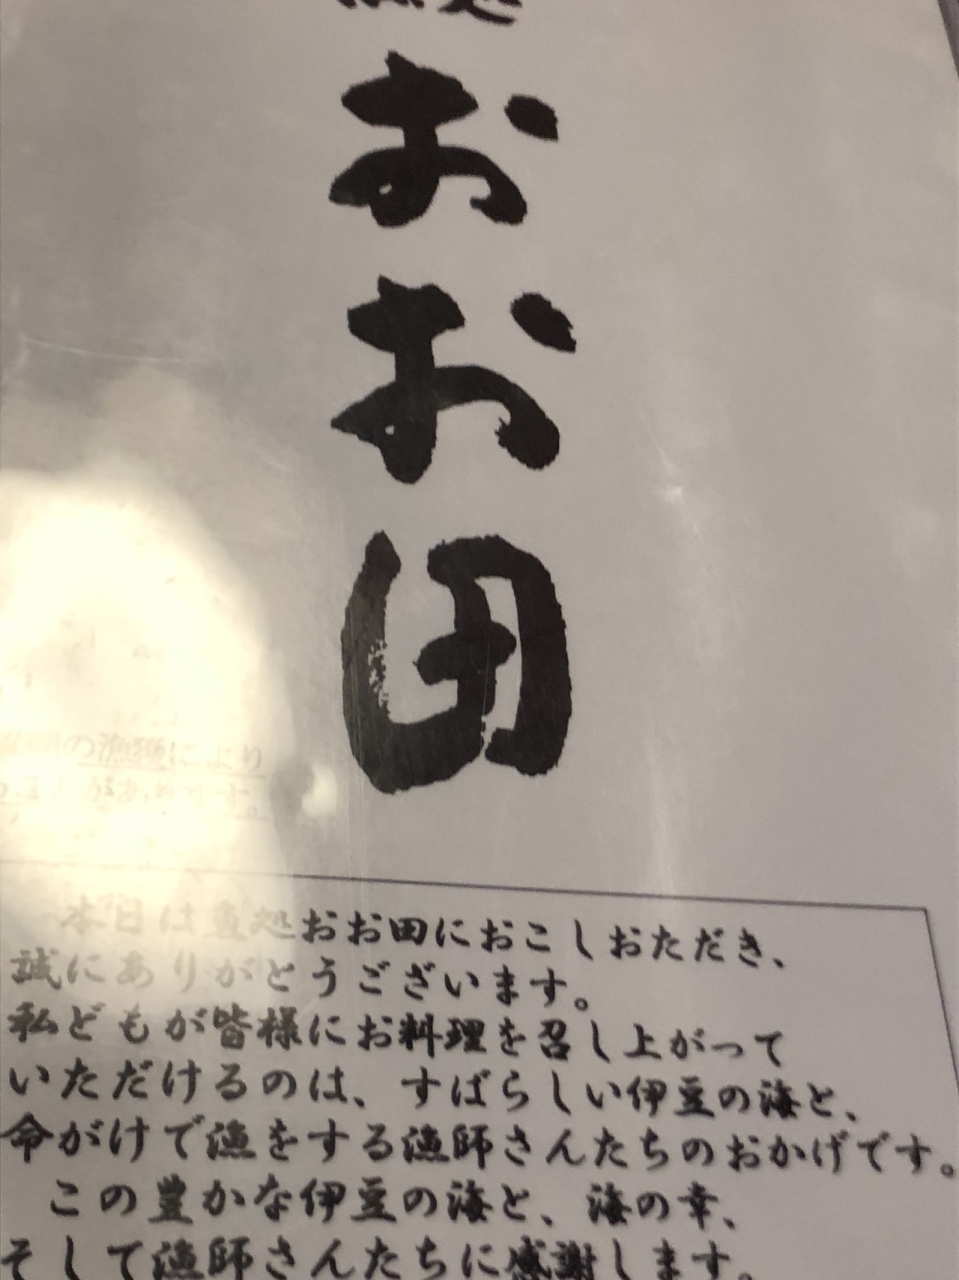 処
おお田
の漁獲により
本日は魚処おお田におこしおただき、
誠にありがとうございます。
私どもが皆様にお料理を召し上がって
いただけるのは、すばらしい伊豆の海と、
命がけで漁をする漁師さんたちのおかげです。
この豊かな伊豆の海と、海の幸、
そして漁師さんたちに感謝します。